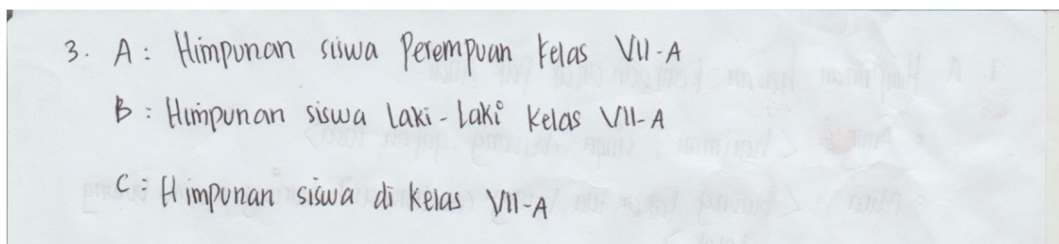 3. A : Himpunan siswa Perempuan kelas VII-A
B : Himpunan siswa Laki-Laki Kelas VII-A
C : Himpunan siswa di kelas VII-A